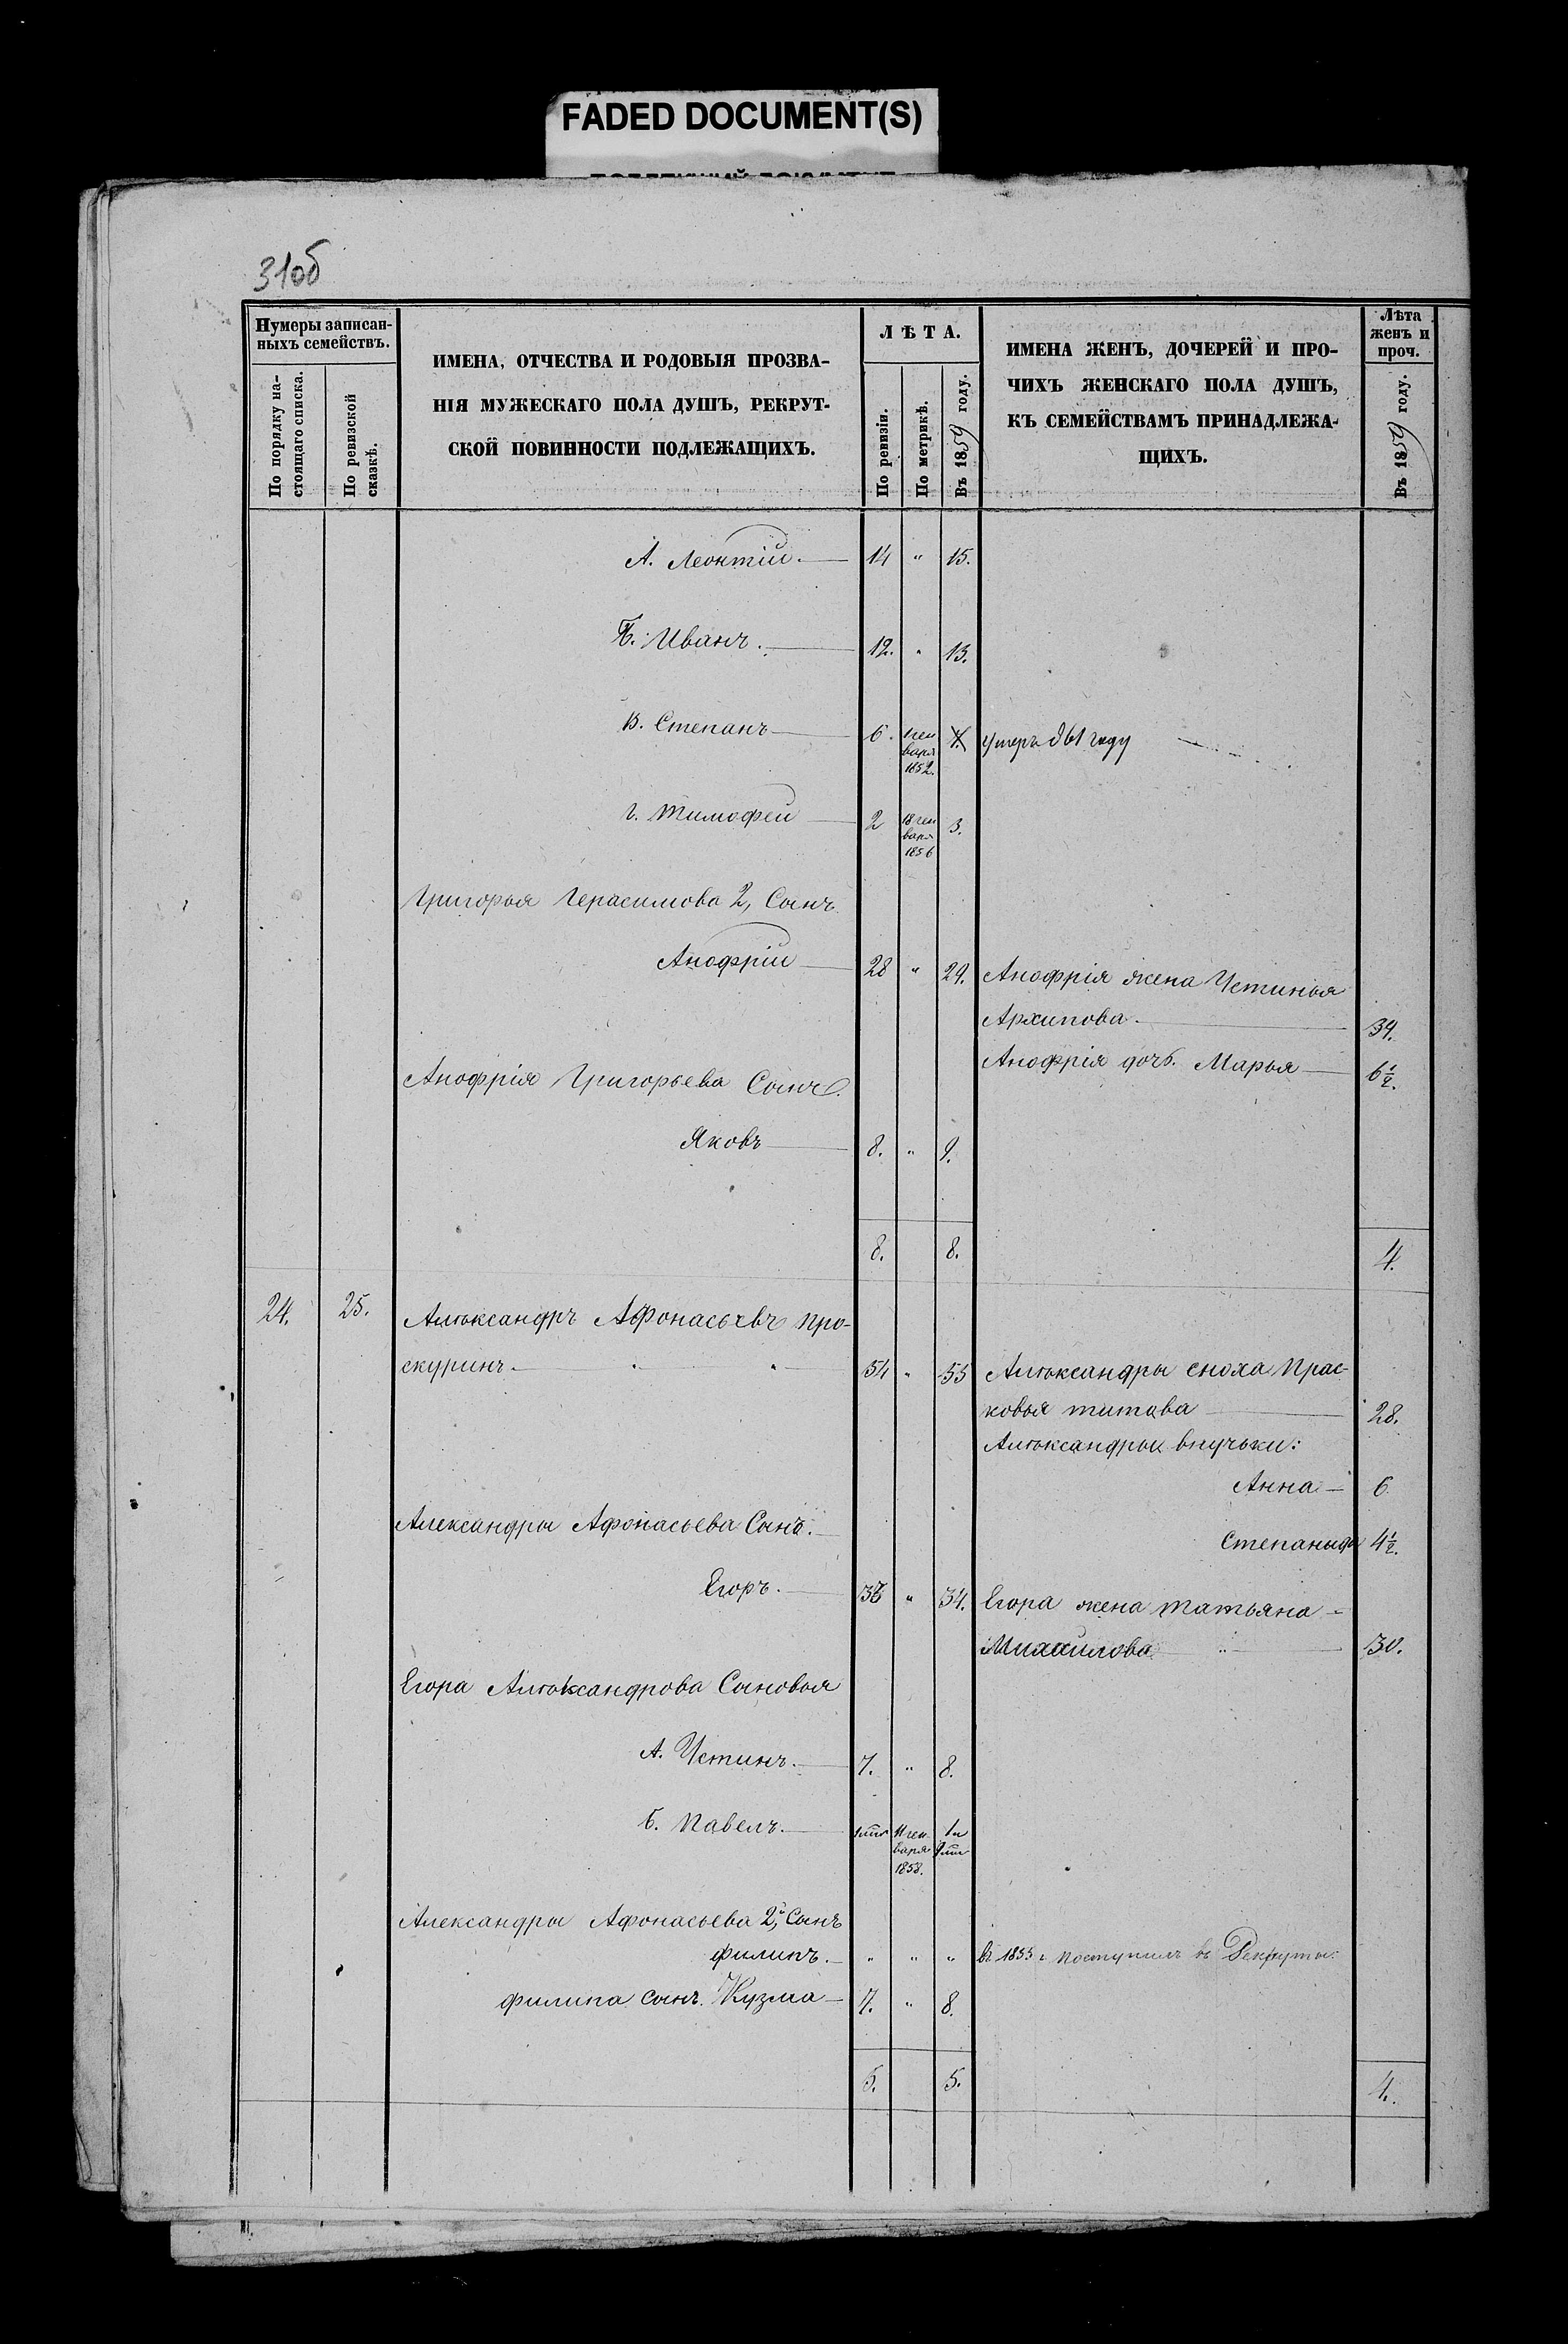 FADED DOCUMENT(S)
31об
Нумеры записан-
ныхъ семействъ.
По порядку на-
стоящаго списка.
По ревизской
сказкѣ.
ИМЕНА, ОТЧЕСТВА И РОДОВЫЯ ПРОЗВА-
НІЯ МУЖЕСКАГО ПОЛА ДУШЪ, РЕКРУТ-
СКОЙ ПОВИННОСТИ ПОДЛЕЖАЩИХЪ.
ЛѢТА.
По ревизіи.
По метрикѣ.
Въ 1859 году.
ИМЕНА ЖЕНЪ, ДОЧЕРЕЙ И ПРО-
ЧИХЪ ЖЕНСКАГО ПОЛА ДУШЪ,
КЪ СЕМЕЙСТВАМЪ ПРИНАДЛЕЖА-
ЩИХЪ.
Лѣта
женъ и
проч.
Въ 1859 году.
А. Леонтій. 14 " 15.
Б. Иванъ. 12. " 13.
В. Степанъ 6. 1 ген
варя
1852. 7. умеръ 861 году
г. Тимофей 2 18 ген
варя
1856 3.
Григорья Герасимова 2, Сынъ
Анофрій 28 " 29. Анофрія жена Устинья
Архипова. 34.
Анофрія дочь. Марья 6½.
Анофрія Григорьева Сынъ.
Яковъ 8. " 9.
8. 8. 4.
24. 25. Алѣксандръ Афонасьевъ Про-
скуринъ. 54 " 55 Алѣксандры сноха Прас-
ковья титова 28.
Алѣксандры внучьки:
Анна 6
Степаныда 4½.
Александры Афонасьева Сынъ.
Егоръ. 33 " 34. Егора жена Татьяна
Михайлова 30.
Егора Алѣксандрова Сыновья
А. Устинъ. 7. " 8.
Б. Павелъ. 11 ген
варя
1858.
Александры Афонасьева 2й, Сынъ
филипъ. " " " въ 1855 г. поступилъ въ Рекруты.
филипа сынъ. Кузма 7. " 8.
5. 5. 4.